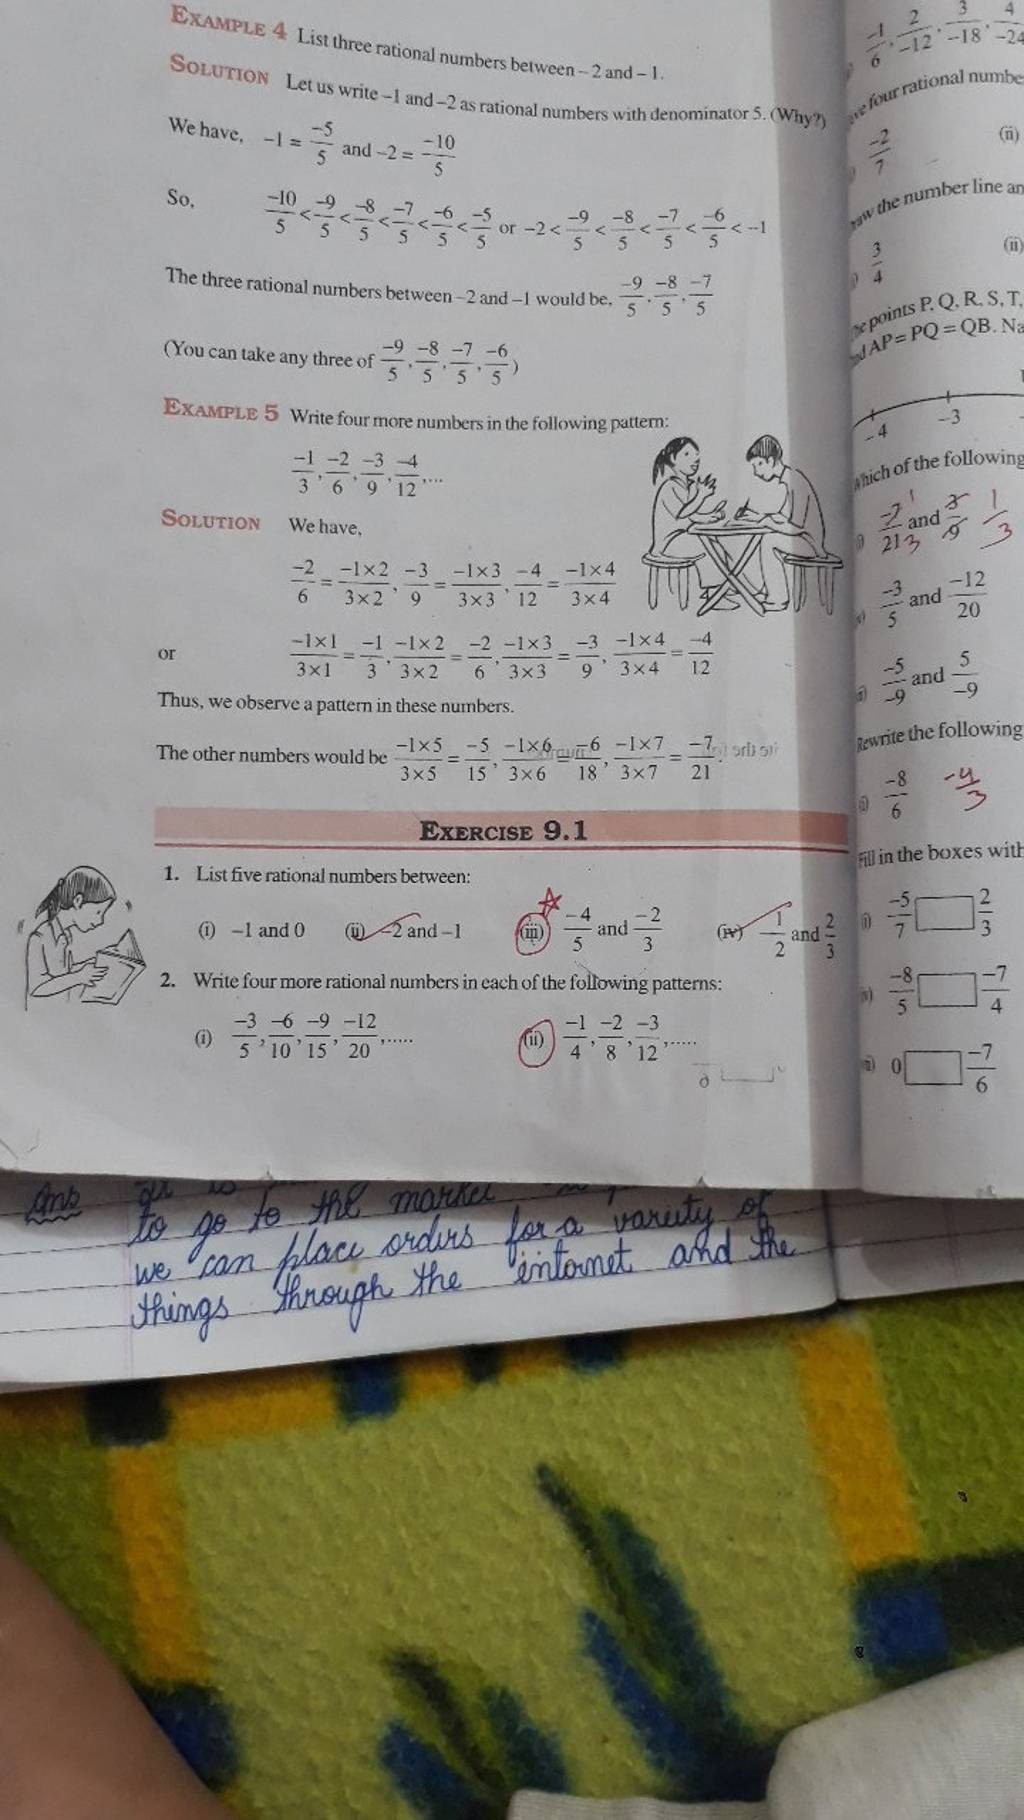 EXAMPLE 4 List three rational numbers between – 2 and – 1.
SOLUTION Let us write –1 and –2 as rational numbers with denominator 5. (Why?)
We have, –1 = -5/5 and –2 = -10/5
So, -10/5 < -9/5 < -8/5 < -7/5 < -6/5 < -5/5 or –2 < -9/5 < -8/5 < -7/5 < -6/5 < –1
The three rational numbers between –2 and –1 would be, -9/5, -8/5, -7/5
(You can take any three of -9/5, -8/5, -7/5, -6/5)
EXAMPLE 5 Write four more numbers in the following pattern:
-1/3, -2/6, -3/9, -4/12,...
SOLUTION We have,
-2/6 = -1×2/3×2, -3/9 = -1×3/3×3, -4/12 = -1×4/3×4
or -1×1/3×1 = -1/3, -1×2/3×2 = -2/6, -1×3/3×3 = -3/9, -1×4/3×4 = -4/12
Thus, we observe a pattern in these numbers.
The other numbers would be -1×5/3×5 = -5/15, -1×6/3×6 = -6/18, -1×7/3×7 = -7/21.
EXERCISE 9.1
1. List five rational numbers between:
(i) –1 and 0 (ii) –2 and –1 (iii) -4/5 and -2/3 (iv) -1/2 and 2/3
2. Write four more rational numbers in each of the following patterns:
(i) -3/5, -6/10, -9/15, -12/20,..... (ii) -1/4, -2/8, -3/12,.....
-1/6, 2/-12, 3/-18, 4/-24
four rational numbe
-2/7 (ii)
the number line an
3/4 (ii)
points P, Q, R, S, T,
AP = PQ = QB. Na
–4 –3
Which of the following
-7/21 and 3/9 1/3
-3/5 and -12/20
-5/-9 and 5/-9
Rewrite the following
(i) -8/6 -4/3
Fill in the boxes with
(i) -5/7 2/3
-8/5 -7/4
0 -7/6
Ans
to go to the market
we can place orders for a variety of
things through the internet and the